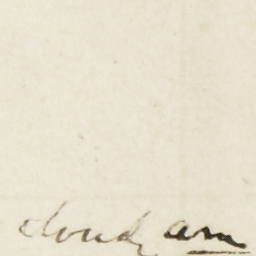 cloudy am